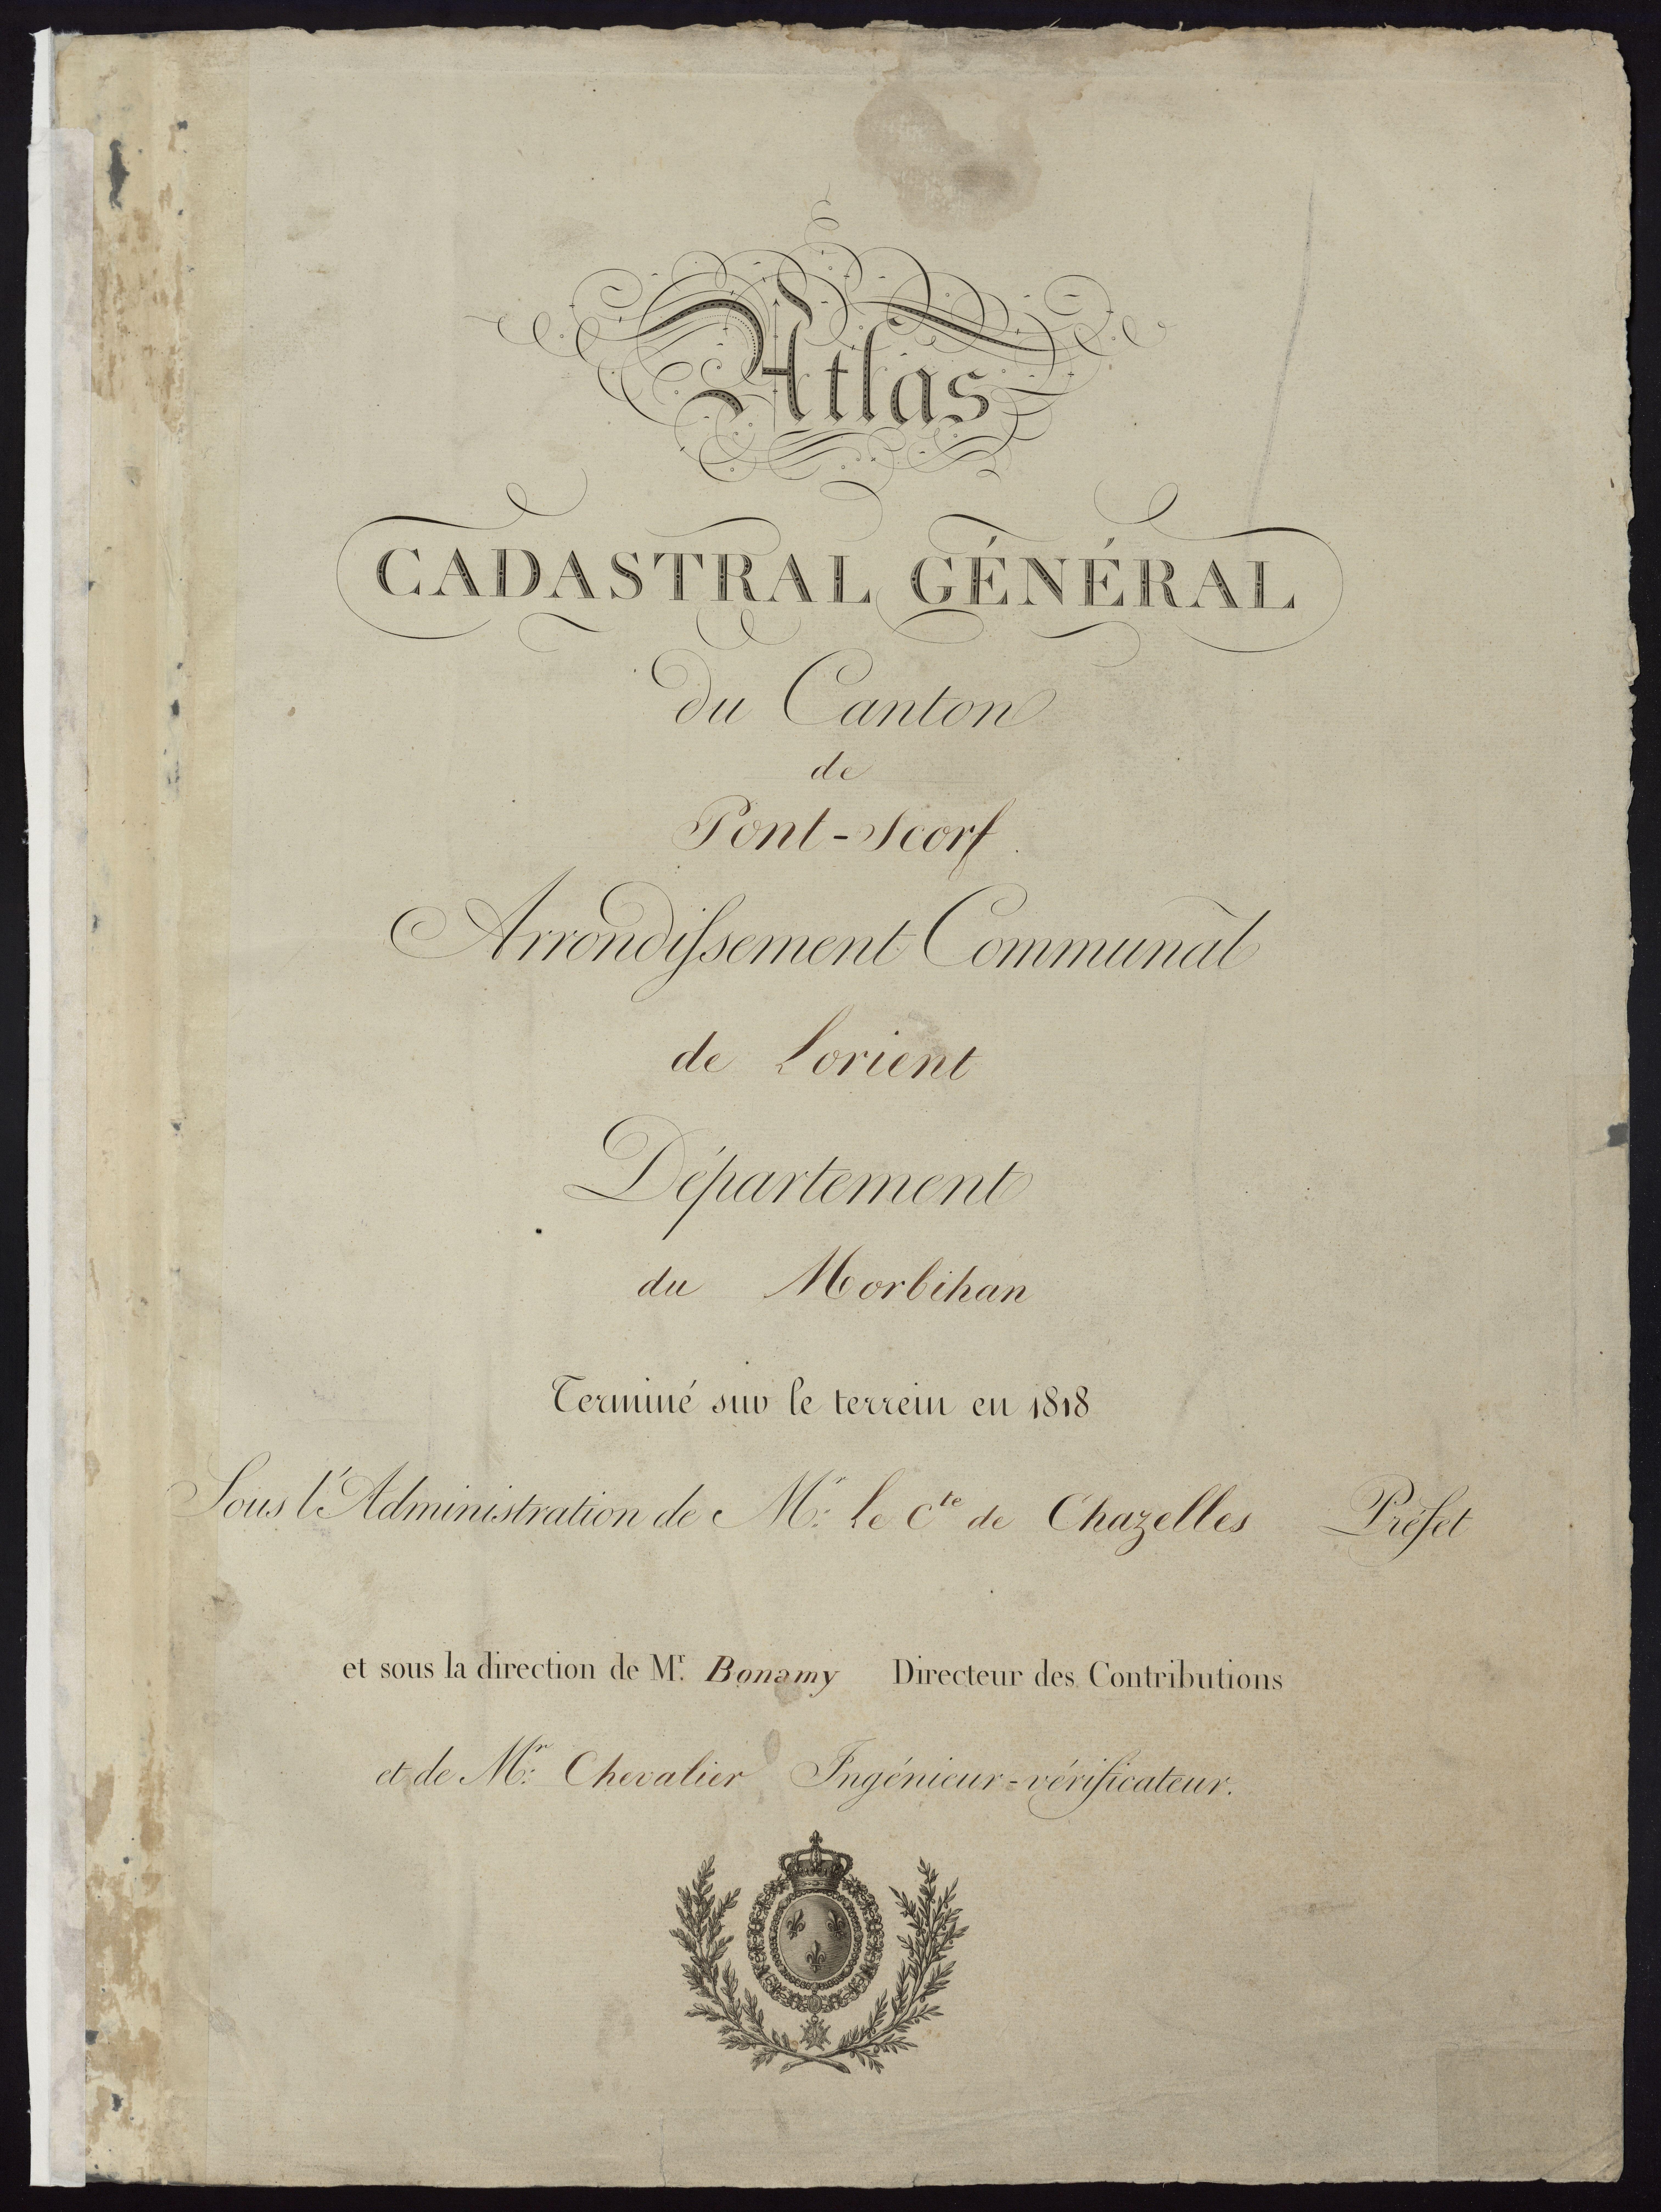 Atlas
CADASTRAL GÉNÉRAL
du Canton
de
Pont-Scorf
Arrondissement Communal
de Lorient
Département
du Morbihan
Terminé sur le terrein en 1818
Sous l'Administration de Mr. le Cte de Chazelles Préfet
et sous la direction de Mr. Bonamy Directeur des Contributions
et de Mr. Chevalier Ingénieur-vérificateur.